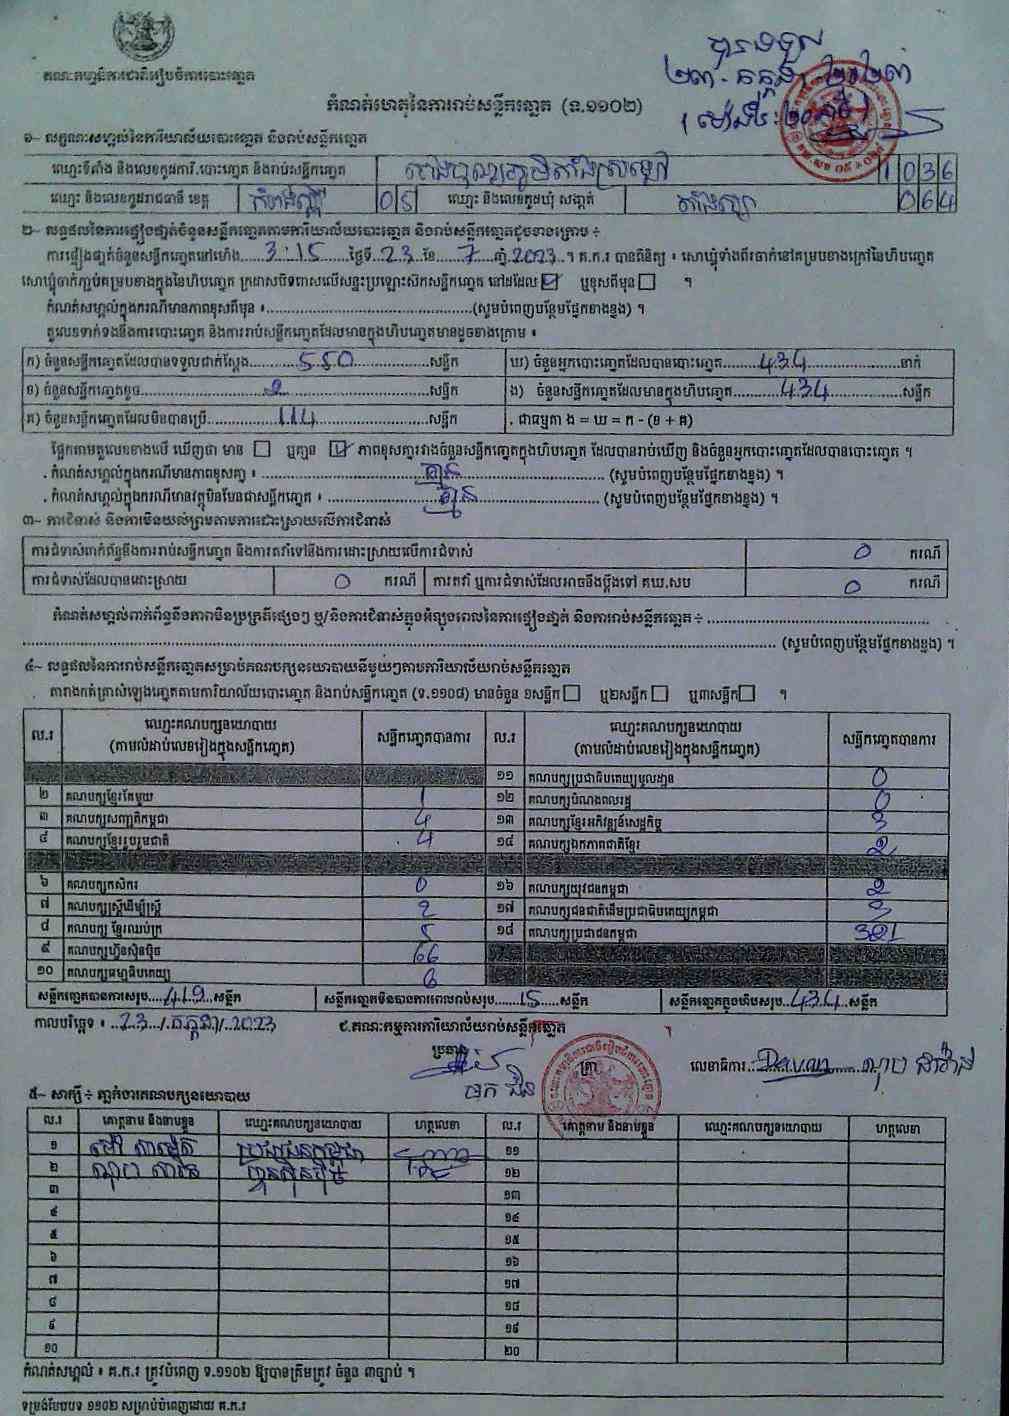 គណៈកម្មាធិការជាតិរៀបចំការបោះឆ្នោត
បានទទួល
២៣-កក្កដា-២០២៣
កំណត់ហេតុនៃការរាប់សន្លឹកឆ្នោត (ទ.១១០២)
១- លក្ខណៈសម្គាល់នៃការិយាល័យបោះឆ្នោត និងរាប់សន្លឹកឆ្នោត
ឈ្មោះទីតាំង និងលេខកូដការិ.បោះឆ្នោត និងរាប់សន្លឹកឆ្នោត 1036
ឈ្មោះ និងលេខកូដរាជធានី ខេត្ត កំពង់ស្ពឺ 05 ឈ្មោះ និងលេខកូដឃុំ សង្កាត់ 064
២- លទ្ធផលនៃការផ្ទៀងផ្ទាត់ចំនួនសន្លឹកឆ្នោតតាមការិយាល័យបោះឆ្នោត និងរាប់សន្លឹកឆ្នោតដូចខាងក្រោម ÷
ការផ្ទៀងផ្ទាត់ចំនួនសន្លឹកឆ្នោតនៅម៉ោង....3:15....ថ្ងៃទី..23..ខែ...7...ឆ្នាំ.2023...។ គ.ក.រ បានពិនិត្យ ៖ សោឃ្មុំទាំងពីរចាក់នៅគម្របខាងក្រៅនៃហិបឆ្នោត
សោឃ្មុំចាក់ភ្ជាប់គម្របខាងក្នុងនៃហិបឆ្នោត ក្រដាសបិទពាសលើសន្ទះប្រឡោះស៊កសន្លឹកឆ្នោត នៅដដែល ☑ ឬខុសពីមុន ☐ ។
កំណត់សម្គាល់ក្នុងករណីមានភាពខុសពីមុន ៖..............................(សូមបំពេញបន្ថែមផ្នែកខាងខ្នង) ។
តួលេខទាក់ទងនឹងការបោះឆ្នោត និងការរាប់សន្លឹកឆ្នោតដែលមានក្នុងហិបឆ្នោតមានដូចខាងក្រោម ៖
ក) ចំនួនសន្លឹកឆ្នោតដែលបានទទួលជាក់ស្តែង..........550..........សន្លឹក ឃ) ចំនួនអ្នកបោះឆ្នោតដែលបានបោះឆ្នោត......434..........នាក់
ខ) ចំនួនសន្លឹកឆ្នោតខូច..........2..........សន្លឹក ង) ចំនួនសន្លឹកឆ្នោតដែលមានក្នុងហិបឆ្នោត......434..........សន្លឹក
គ) ចំនួនសន្លឹកឆ្នោតដែលមិនបានប្រើ..........114..........សន្លឹក . ជាធម្មតា ង = ឃ = ក - (ខ + គ)
ផ្អែកតាមតួលេខខាងលើ ឃើញថា មាន ☐ ឬគ្មាន ☑ ភាពខុសគ្នារវាងចំនួនសន្លឹកឆ្នោតក្នុងហិបឆ្នោត ដែលបានរាប់ឃើញ និងចំនួនអ្នកបោះឆ្នោតដែលបានបោះឆ្នោត ។
. កំណត់សម្គាល់ក្នុងករណីមានភាពខុសគ្នា ៖ ..........គ្មាន.......... (សូមបំពេញបន្ថែមផ្នែកខាងខ្នង) ។
. កំណត់សម្គាល់ក្នុងករណីមានវត្ថុមិនមែនជាសន្លឹកឆ្នោត ៖ ..........គ្មាន.......... (សូមបំពេញបន្ថែមផ្នែកខាងខ្នង) ។
៣- ការជំទាស់ និងការមិនយល់ព្រមតាមការដោះស្រាយលើការជំទាស់
ការជំទាស់ពាក់ព័ន្ធនឹងការរាប់សន្លឹកឆ្នោត និងការតវ៉ាទៅនឹងការដោះស្រាយលើការជំទាស់ 0 ករណី
ការជំទាស់ដែលបានដោះស្រាយ 0 ករណី ការតវ៉ា ឬការជំទាស់ដែលអាចនឹងប្តឹងទៅ គឃ.សប 0 ករណី
កំណត់សម្គាល់ពាក់ព័ន្ធនឹងភាពមិនប្រក្រតីផ្សេងៗ ឬ/និងការជំទាស់ក្នុងអំឡុងពេលនៃការផ្ទៀងផ្ទាត់ និងការរាប់សន្លឹកឆ្នោត ÷ ..............................
.............................. (សូមបំពេញបន្ថែមផ្នែកខាងខ្នង) ។
៤- លទ្ធផលនៃការរាប់សន្លឹកឆ្នោតសម្រាប់គណបក្សនយោបាយនីមួយៗតាមការិយាល័យរាប់សន្លឹកឆ្នោត
តារាងកត់ត្រាសំឡេងឆ្នោតតាមការិយាល័យបោះឆ្នោត និងរាប់សន្លឹកឆ្នោត (ទ.១១០៨) មានចំនួន ១សន្លឹក ☐ ឬ២សន្លឹក ☐ ឬ៣សន្លឹក ☐ ។
ល.រ ឈ្មោះគណបក្សនយោបាយ (តាមលំដាប់លេខរៀងក្នុងសន្លឹកឆ្នោត) សន្លឹកឆ្នោតបានការ ល.រ ឈ្មោះគណបក្សនយោបាយ (តាមលំដាប់លេខរៀងក្នុងសន្លឹកឆ្នោត) សន្លឹកឆ្នោតបានការ
១១ គណបក្សប្រជាធិបតេយ្យមូលដ្ឋាន 0
២ គណបក្សខ្មែរតែមួយ 1 ១២ គណបក្សបំណងពលរដ្ឋ 0
៣ គណបក្សសញ្ជាតិកម្ពុជា 4 ១៣ គណបក្សខ្មែរអភិវឌ្ឍន៍សេដ្ឋកិច្ច 3
៤ គណបក្សខ្មែររួបរួមជាតិ 4 ១៤ គណបក្សឯកភាពជាតិខ្មែរ 2
៦ គណបក្សកសិករ 0 ១៦ គណបក្សយុវជនកម្ពុជា 2
៧ គណបក្សស្ត្រីដើម្បីស្ត្រី 2 ១៧ គណបក្សជនជាតិដើមប្រជាធិបតេយ្យកម្ពុជា 3
៨ គណបក្ស ខ្មែរឈប់ក្រ 5 ១៨ គណបក្សប្រជាជនកម្ពុជា 321
៩ គណបក្សហ្វ៊ុនស៊ិនប៉ិច 66
១០ គណបក្សធម្មាធិបតេយ្យ 6
សន្លឹកឆ្នោតបានការសរុប....419..សន្លឹក សន្លឹកឆ្នោតមិនបានការពេលរាប់សរុប.......15....សន្លឹក សន្លឹកឆ្នោតក្នុងហិបសរុប....434...សន្លឹក
កាលបរិច្ឆេទ ៖ ..23../.កក្កដា./..2023 ជ.គណៈកម្មការការិយាល័យរាប់សន្លឹកឆ្នោត
ប្រធាន ត្រា លេខាធិការ
៥- សាក្សី ÷ ភ្នាក់ងារគណបក្សនយោបាយ
ល.រ គោត្តនាម និងនាមខ្លួន ឈ្មោះគណបក្សនយោបាយ ហត្ថលេខា ល.រ គោត្តនាម និងនាមខ្លួន ឈ្មោះគណបក្សនយោបាយ ហត្ថលេខា
១ ប្រជាជនកម្ពុជា ១១
២ ហ្វ៊ុនស៊ិនប៉ិច ១២
៣ ១៣
៤ ១៤
៥ ១៥
៦ ១៦
៧ ១៧
៨ ១៨
៩ ១៩
១០ ២០
កំណត់សម្គាល់ ៖ គ.ក.រ ត្រូវបំពេញ ទ.១១០២ ឱ្យបានត្រឹមត្រូវ ចំនួន ៣ច្បាប់ ។
ទម្រង់បែបបទ ១១០២ សម្រាប់បំពេញដោយ គ.ក.រ